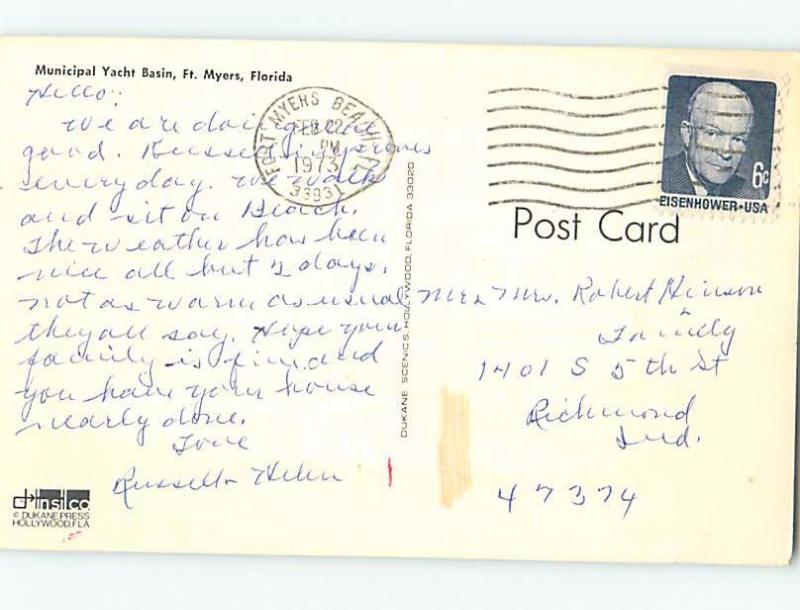 Municipal Yacht Basin, Ft. Myers, Florida
Hello:
We are doing
good. Russell improves
everyday. We walk
and sit on Beach.
The weather has been
nice all but 2 days.
not as warm as usual
they all say. Hope your
family is fine and
you have your house
nearly done.
Love
Russell + Helen
insilco
© DUKANE PRESS
HOLLYWOOD, FLA
DUKANE SCENICS, HOLLYWOOD, FLORIDA 33020
FORT MYERS BEACH FLA
FEB 22
PM
1973
33931
6c
EISENHOWER·USA
Post Card
Mr & Mrs. Robert Hinson
Family
1401 S 5th St
Richmond
Ind.
47374